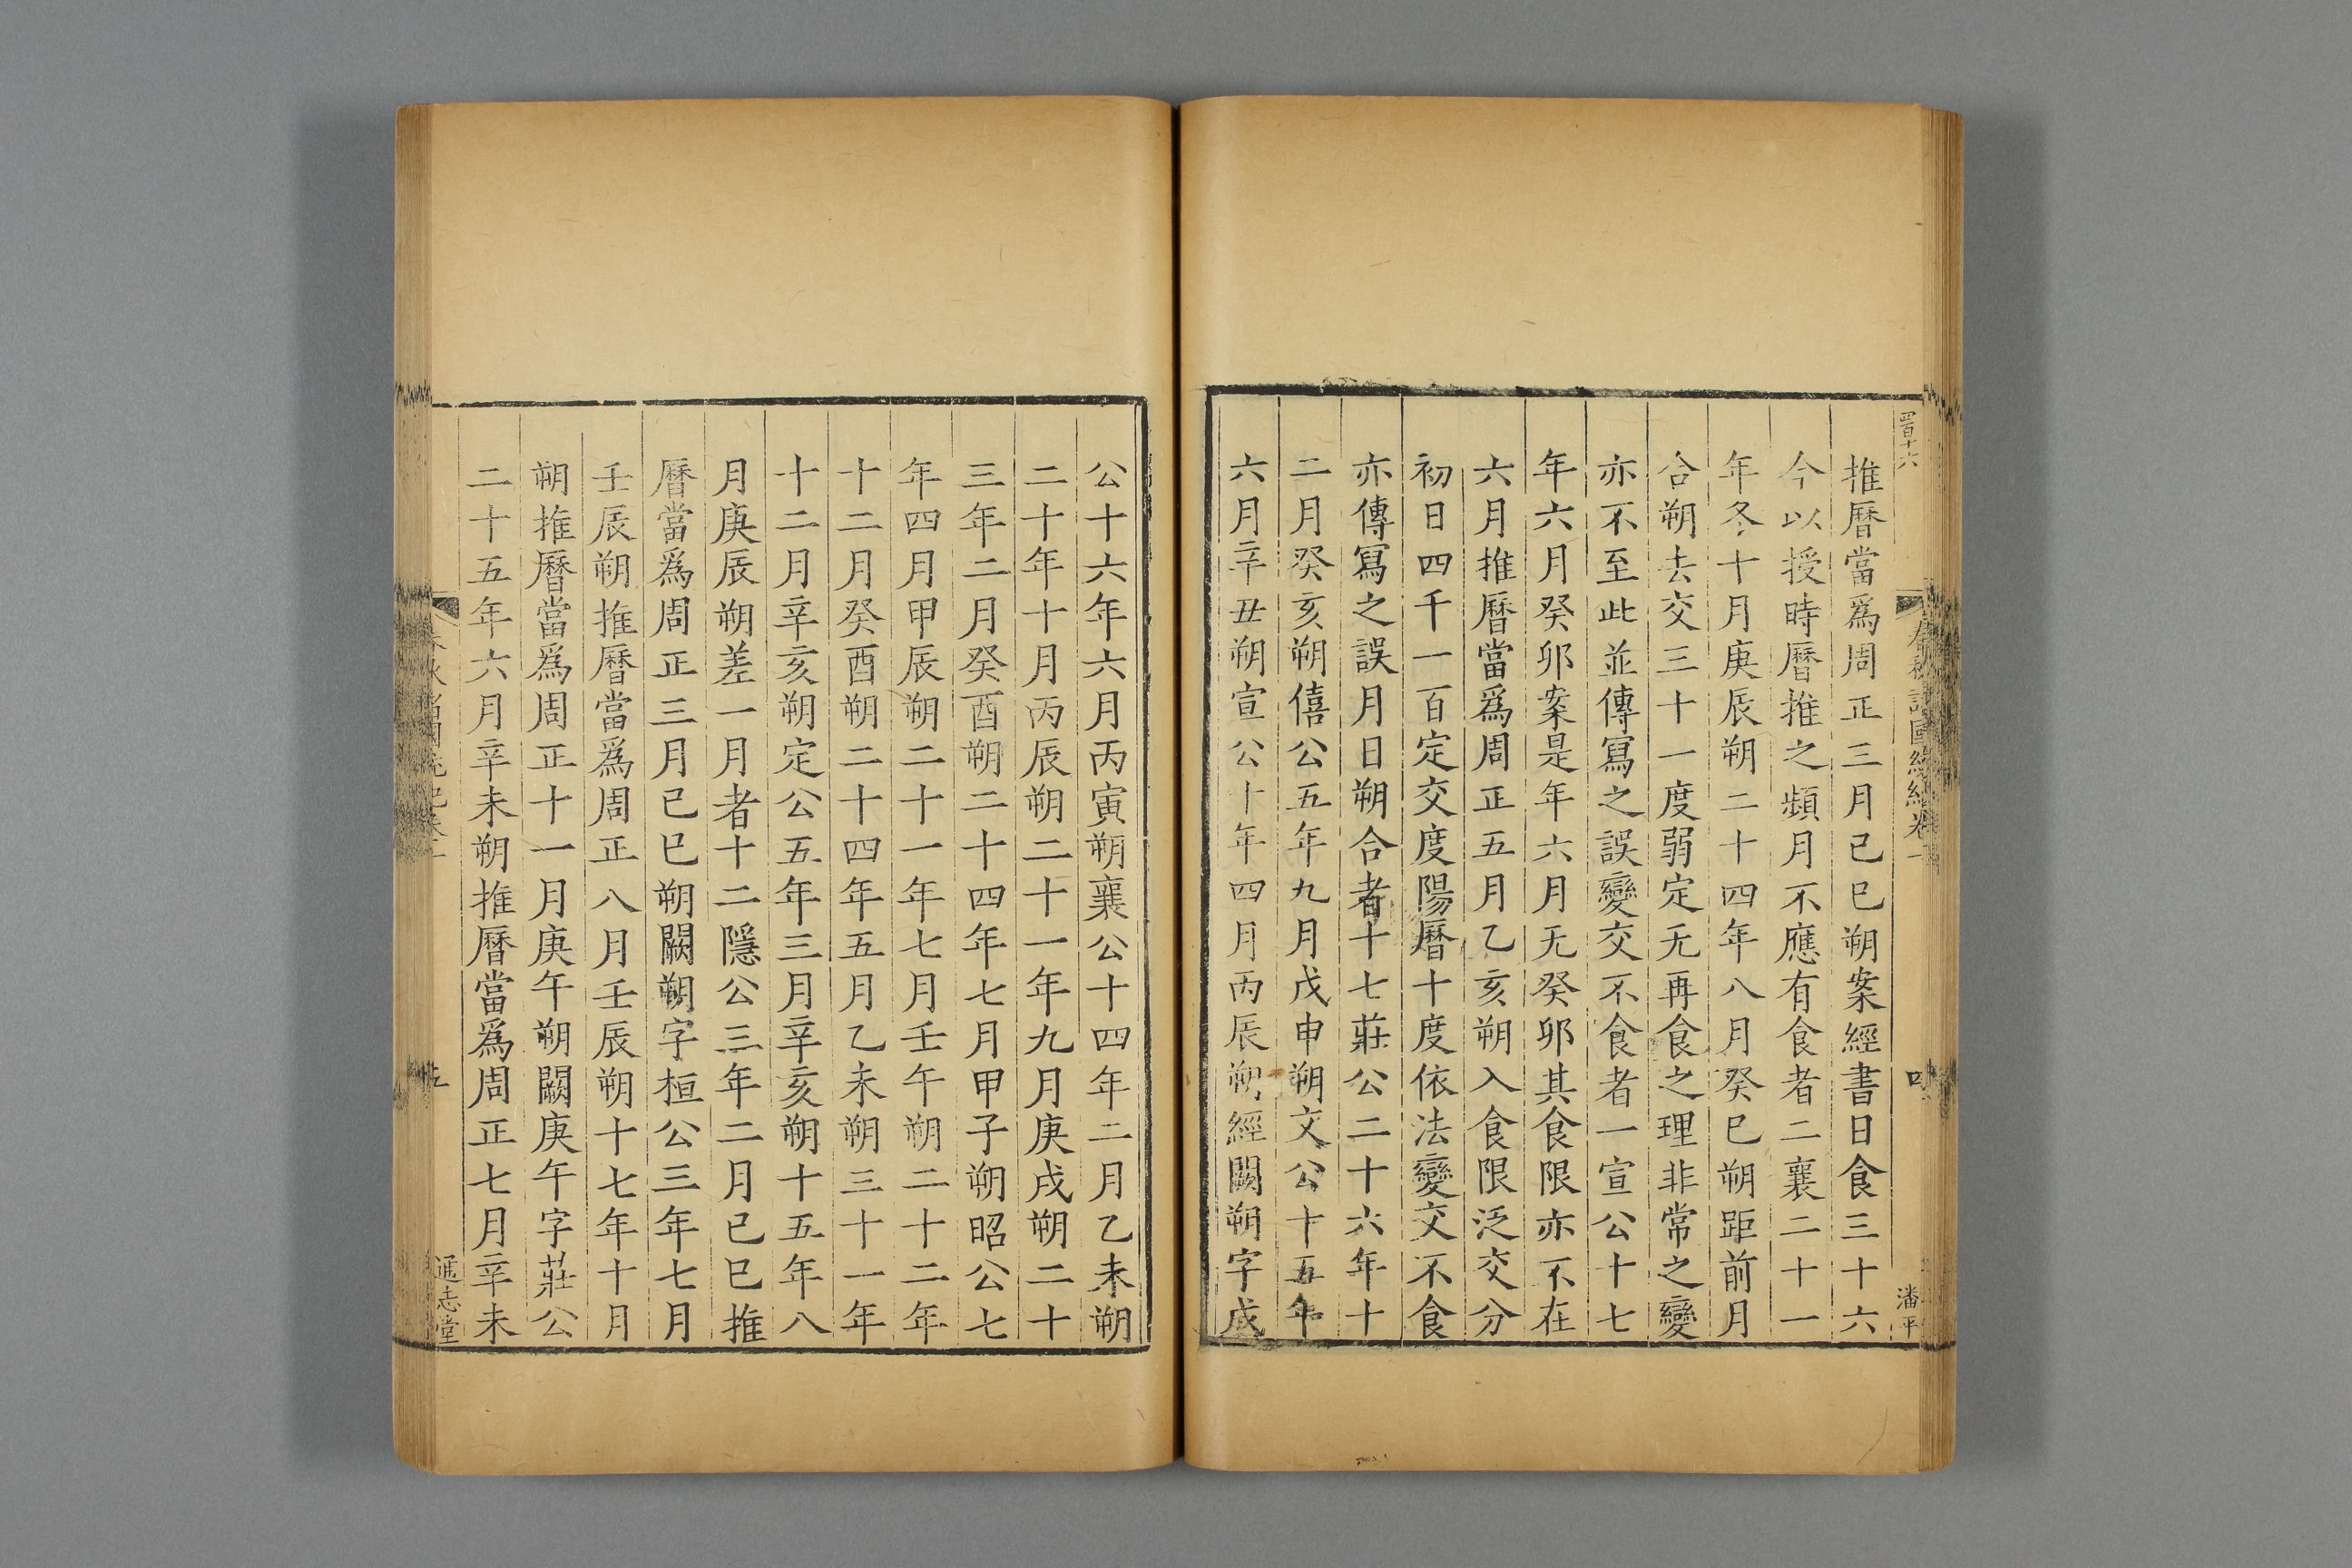 四百十六
推曆當爲周正三月己巳朔案經書日食三十六
今以授時曆推之頻月不應有食者二襄二十一
年冬十月庚辰朔二十四年八月癸巳朔距前月
合朔去交三十一度弱定无再食之理非常之變
亦不至此並傳寫之誤變交不食者一宣公十七
年六月癸卯案是年六月无癸卯其食限亦不在
六月推曆當爲周正五月乙亥朔入食限泛交分
初日四千一百定交度陽曆十度依法變交不食
亦傳寫之誤月日朔合者十七莊公二十六年十
二月癸亥朔僖公五年九月戊申朔文公十五年
六月辛丑朔宣公十年四月丙辰朔經闕朔字成
春秋諸國統紀卷一
四
潘平
公十六年六月丙寅朔襄公十四年二月乙未朔
二十年十月丙辰朔二十一年九月庚戌朔二十
三年二月癸酉朔二十四年七月甲子朔昭公七
年四月甲辰朔二十一年七月壬午朔二十二年
十二月癸酉朔二十四年五月乙未朔三十一年
十二月辛亥朔定公五年三月辛亥朔十五年八
月庚辰朔差一月者十二隱公三年二月己巳推
曆當爲周正三月己巳朔闕朔字桓公三年七月
壬辰朔推曆當爲周正八月壬辰朔十七年十月
朔推曆當爲周正十一月庚午朔闕庚午字莊公
二十五年六月辛未朔推曆當爲周正七月辛未
五
通志堂